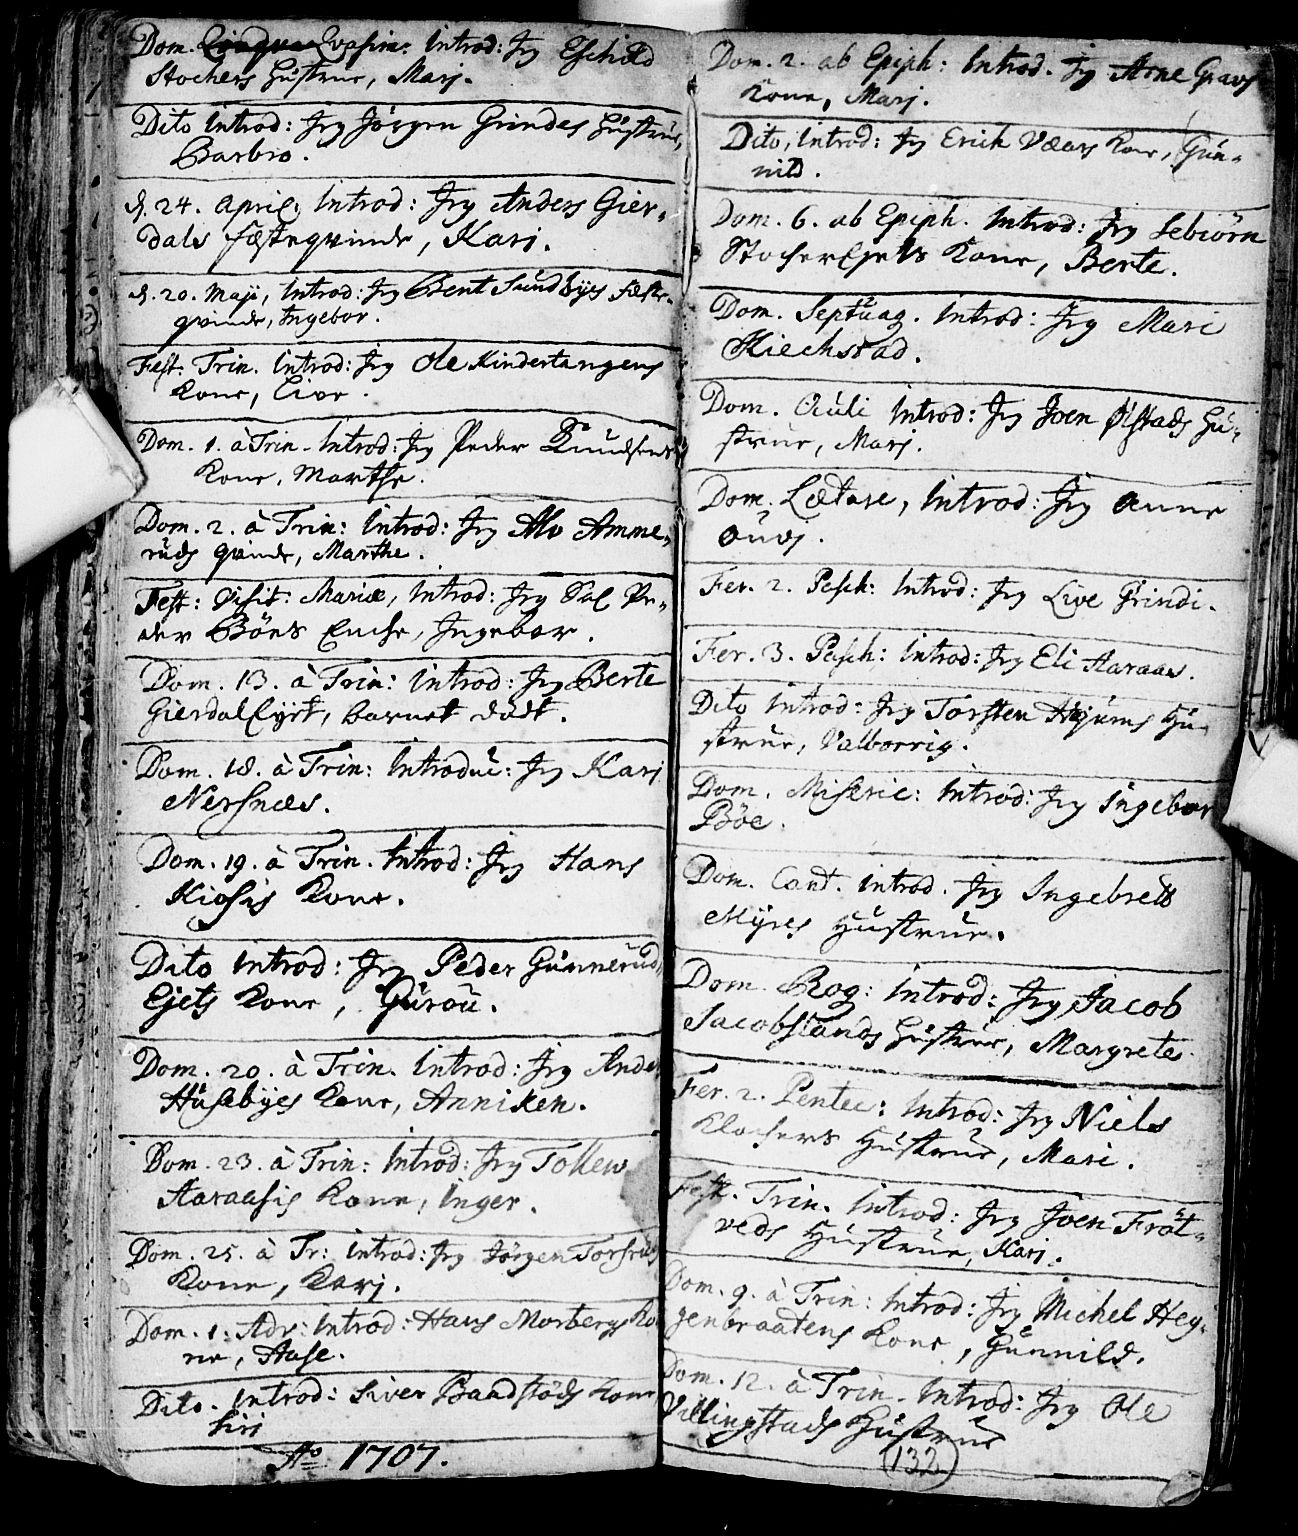 Dom. Qvasim. Introd: Jeg Eschild
Stochers Hustrue, Marj.
Dito Introd: Jeg Jörgen Grindes Hustrue,
Barbro.
d. 24. April. Introd: Jeg Anders Gier-
dals fæsteqvinde, Karj.
d. 20. Maji, Introd: Jeg Bent Sundbyes fæste-
qvinde, Ingebor.
Fest. Trin. Introd: Jeg Ole Kindertangens
Kone, Live.
Dom. 1. à Trin. Introd: Jeg Peder Knudsens
Kone, Marthe.
Dom. 2. à Trin: Introd: Jeg Alv Amme-
ruds qvinde, Marthe.
Fest: Visit: Mariæ, Introd: Jeg Sal Pe-
der Böns Enche, Ingebor.
Dom. 13. à Trin: Introd: Jeg Berte
Gierdal, barnet dödt.
Dom. 18. à Trin: Introduc: Jeg Karj
Nersnæs.
Dom. 19. à Trin. Introd: Jeg Hans
Kiosis Kone.
Dito Introd: Jeg Peder Gunnerud-
Ejets Kone, Gurou.
Dom. 20. à Trin. Introd: Jeg Ande
Husebyes Kone, Anniken.
Dom. 23. à Trin: Introd: Jeg Tollew
Aaraasis Kone, Inger.
Dom. 25. à Tr: Introd: Jeg Jörgen Torsruds
Kone, Karj.
Dom. 1. Adv: Introd: Hans Morbergs Ko
ne, Aase.
Dito. Introd: Siver Baadstöds Kone
Siri
Ao 1707.
Dom. 2. ab Epiph: Introd. Jeg Arne Gravs
Kone, Marj.
Dito, Introd: Jeg Erich Vears Kone, Gun-
nild.
Dom. 6. ab Epiph. Introd: Jeg Sebiörn
StocherEjets Kone, Berte.
Dom. Septuag. Introd: Jeg Mari
Kiechstad.
Dom. Oculi Introd: Jeg Joen Ølstads Hu-
strue, Marj.
Dom. Lætare, Introd: Jeg Anne
Ouds.
Fer. 2. Pasch: Introd: Jeg Live Grindi.
Fer. 3. Pasch: Introd: Jeg Eli Aaraas.
Dito Introd: Jeg Torsten Hajums Hu-
strue, Valborrig.
Dom. Miseric: Introd: Jeg Ingebor
Böe.
Dom. Cant. introd. Jeg Ingebrett
Myres Hustrue.
Dom. Rog: Introd: Jeg Jacob
Jacobslands Hustrue, Margrete.
Fer. 2. Pentec: Introd: Jeg Niels
Klochers Hustrue, Mari.
Fest. Trin. Introd: Jeg Joen Fröt-
veds Hustrue, Karj.
Dom. 9. à Trin: Introd: Jeg Michel Heg-
genbraatens Kone, Gunnild.
Dom. 12. à Trin. Introd: Jeg Ole
Villingstads Hustrue
(132)